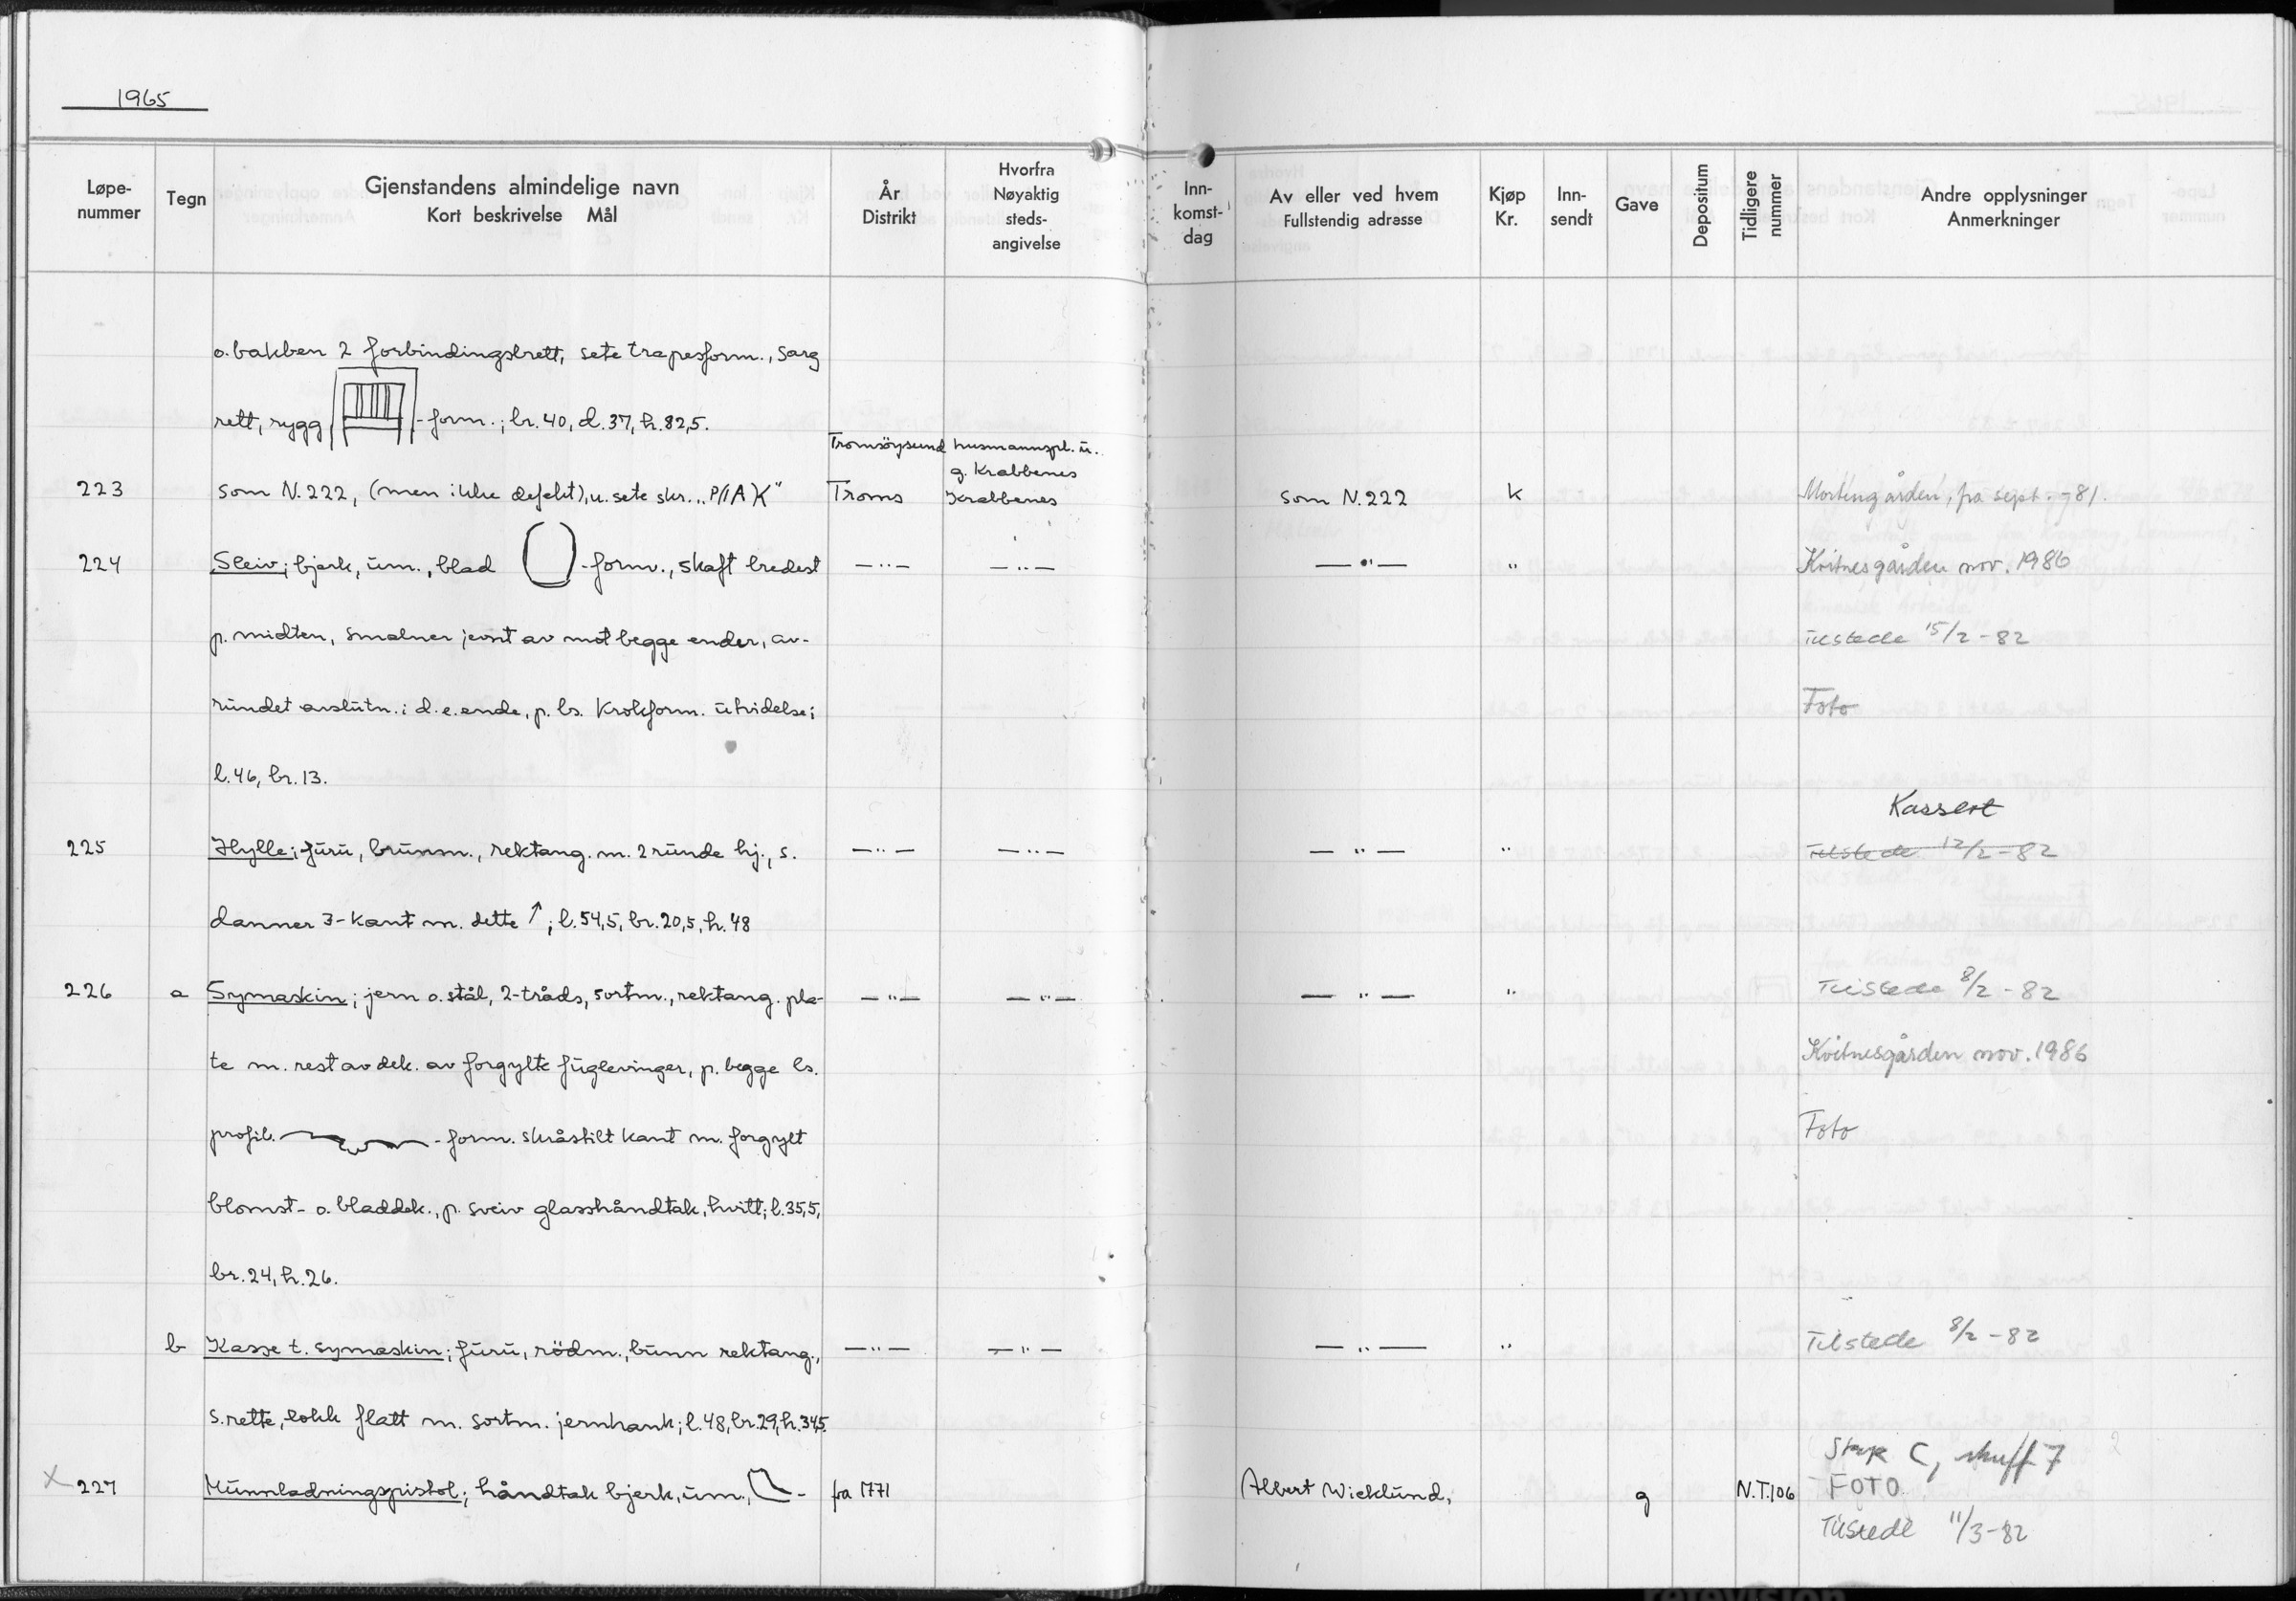 1965
Løpe-
nummer
Tegn
Gjenstandens almindelige navn
Kort beskrivelse Mål
År
Distrikt
Hvorfra
Nøyaktig
steds-
angivelse
Inn-
komst-
dag
Av eller ved hvem
Fullstendig adresse
Kjøp
Kr.
Inn-
sendt
Gave
Depositum
Tidligere
nummer
Andre opplysninger
Anmerkninger
o. bakben 2 forbindingsbrett, sete trapesform., sarg
rett, rygg -form.; br. 40, d. 37, h. 82,5.
Tromsöysund husmannspl. u.
g. Krabbenes
223 som N. 222, (men ikke defekt), u. sete skr. Troms Krabbenes som N. 222 k Mortengården, fra sept. -81.
224 Sleiv; bjerk, um., blad -form., skaft bredest —"— —"— —"— " Kvitnesgården nov. 1986
p. midten, smalner jevnt av mot begge ender, av- Tilstede 15/2 - 82
rundet avslutn. i d. e. ende, p. bs. krokform. utvidelse; Foto
l. 46, br. 13.
Kassert
225 Hylle; furu, brunm., rektang. m. 2 runde hj., s. —"— —"— —"— " Tilstede 12/2 - 82
danner 3-kant m. dette ↑; l. 54,5, br. 20,5, h. 48
226 a Symaskin; jern o. stål, 2-tråds, sortm., rektang. pla- —"— —"— —"— " Tilstede 8/2 - 82
te m. rest av dek. av forgylte fuglevinger, p. begge ls. Kvitnesgården nov. 1986
profil. -form. skråstilt kant m. forgylt Foto
blomst- o. bladdek., p. sveiv glasshåndtak, hvitt; l. 35,5,
br. 24, h. 26.
b Kasse t. symaskin; furu, rödm., bunn rektang., —"— —"— —"— " Tilstede 8/2 - 82
s. rette, lokk flatt m. sortm. jernhank; l. 48, br. 29, h. 34,5.
C, skuff 7
X 227 Munnladningspistol; håndtak bjerk, um., - fra 1771 Albert Wicklund, g N.T.106 FOTO
Tilstede 11/3 - 82